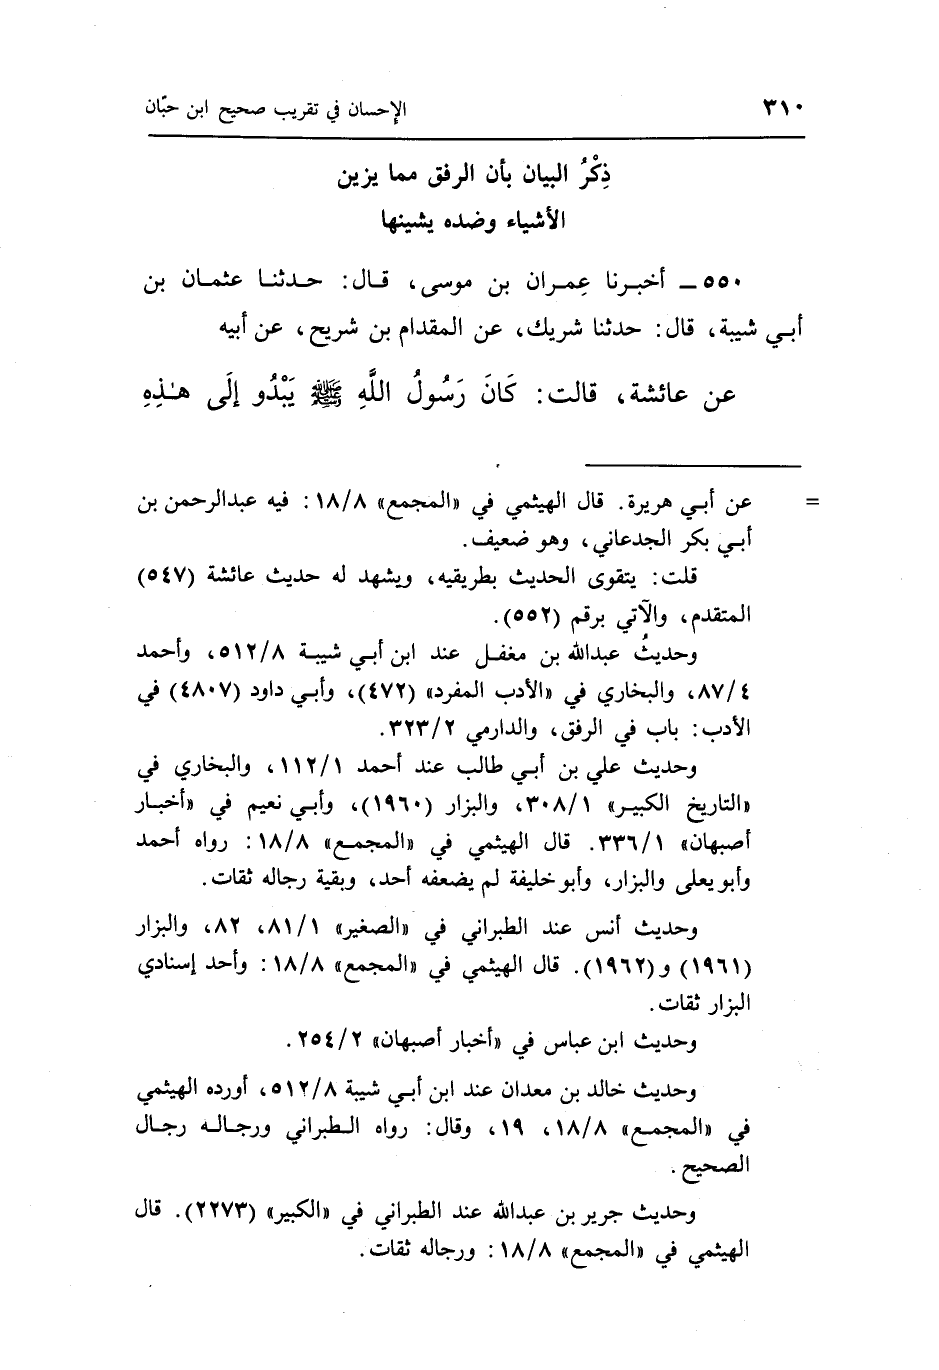 ٣١٠ الإحسان في تقريب صحيح ابن حبّان
ذِكْرُ البيان بأن الرفق مما يزين
الأشياء وضده يشينها
٥٥٠ ـ أخبرنا عِمران بن موسى، قال: حدثنا عثمان بن
أبي شيبة، قال: حدثنا شريك، عن المقدام بن شريح، عن أبيه
عن عائشة، قالت: كَانَ رَسُولُ اللَّهِ ﷺ يَبْدُو إلَى هـٰذِهِ
= عن أبي هريرة. قال الهيثمي في «المجمع» ١٨/٨: فيه عبدالرحمن بن
أبي بكر الجدعاني، وهو ضعيف.
قلت: يتقوى الحديث بطريقيه، ويشهد له حديث عائشة (٥٤٧)
المتقدم، والآتي برقم (٥٥٢).
وحديثُ عبدالله بن مغفل عند ابن أبي شيبة ٥١٢/٨، وأحمد
٨٧/٤، والبخاري في «الأدب المفرد» (٤٧٢)، وأبي داود (٤٨٠٧) في
الأدب: باب في الرفق، والدارمي ٣٢٣/٢.
وحديث علي بن أبي طالب عند أحمد ١١٢/١، والبخاري في
«التاريخ الكبير» ٣٠٨/١، والبزار (١٩٦٠)، وأبي نعيم في «أخبار
أصبهان» ٣٣٦/١. قال الهيثمي في «المجمع» ١٨/٨: رواه أحمد
وأبو يعلى والبزار، وأبو خليفة لم يضعفه أحد، وبقية رجاله ثقات.
وحديث أنس عند الطبراني في «الصغير» ٨١/١، ٨٢، والبزار
(١٩٦١) و(١٩٦٢). قال الهيثمي في «المجمع» ١٨/٨: وأحد إسنادي
البزار ثقات.
وحديث ابن عباس في «أخبار أصبهان» ٢٥٤/٢.
وحديث خالد بن معدان عند ابن أبي شيبة ٥١٢/٨، أورده الهيثمي
في «المجمع» ١٨/٨، ١٩، وقال: رواه الطبراني ورجاله رجال
الصحيح.
وحديث جرير بن عبدالله عند الطبراني في «الكبير» (٢٢٧٣). قال
الهيثمي في «المجمع» ١٨/٨: ورجاله ثقات.